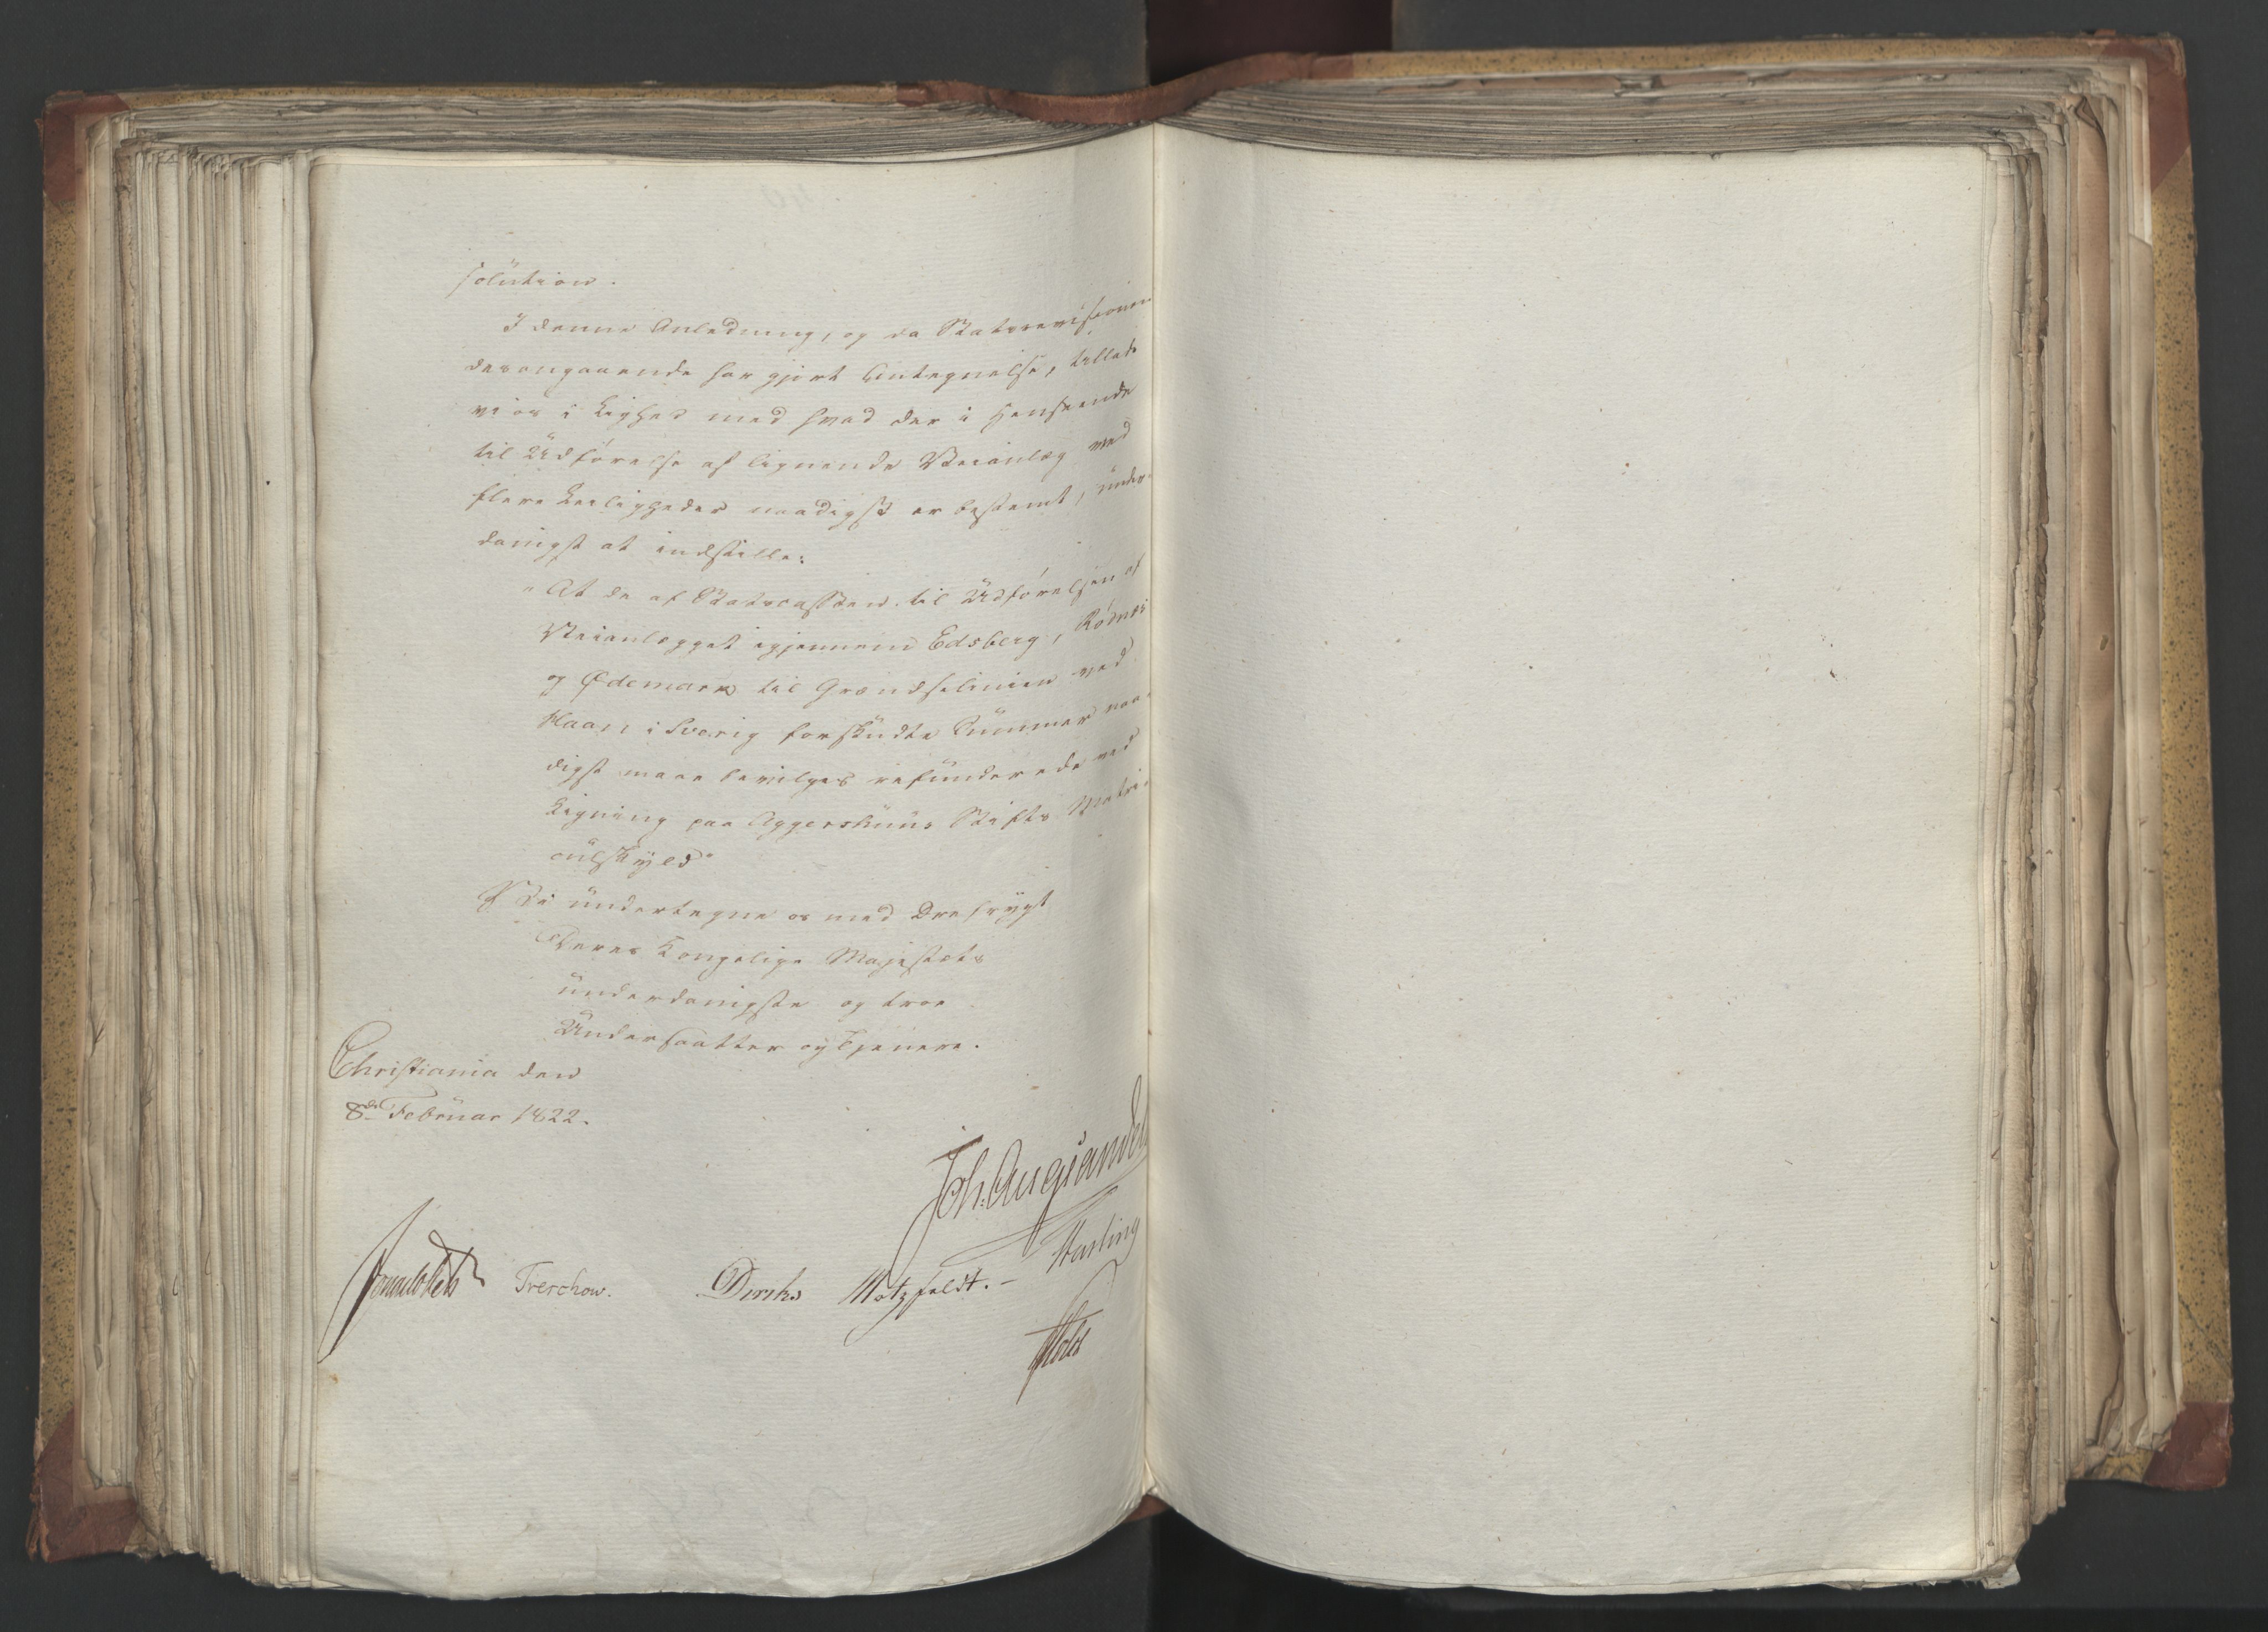 solution.
I denne Anledning, og da Statsrevisionen
desangaaende har gjort Antegnelse, tillade
vi os i Lighed med hvad der i Henseende
til Udførelse af lignende Veianlæg ved
flere Leiligheder naadigst er bestemt, under-
danigst at indstille:
"At de af Statscassen til Udførelsen af
Veianlægget igjennem Edsberg, Rødnæs
og Ødemark til Grændselinien ved
Haan i Sverig forskudte Summer naa-
digst maae bevilges refunderede ved
Ligning paa Aggershuus Stifts Matri-
culskyld"
Vi undertegne os med Drefrygt
Deres Kongelige Majestæts
underdanigste og troe
Undersaatter og Tjenere.
Christiania den
8de Februar 1822.
Joh. Aug. Sandels
Sommerhielm Treschow. Diriks Motzfeldt.- Fasting
Holst